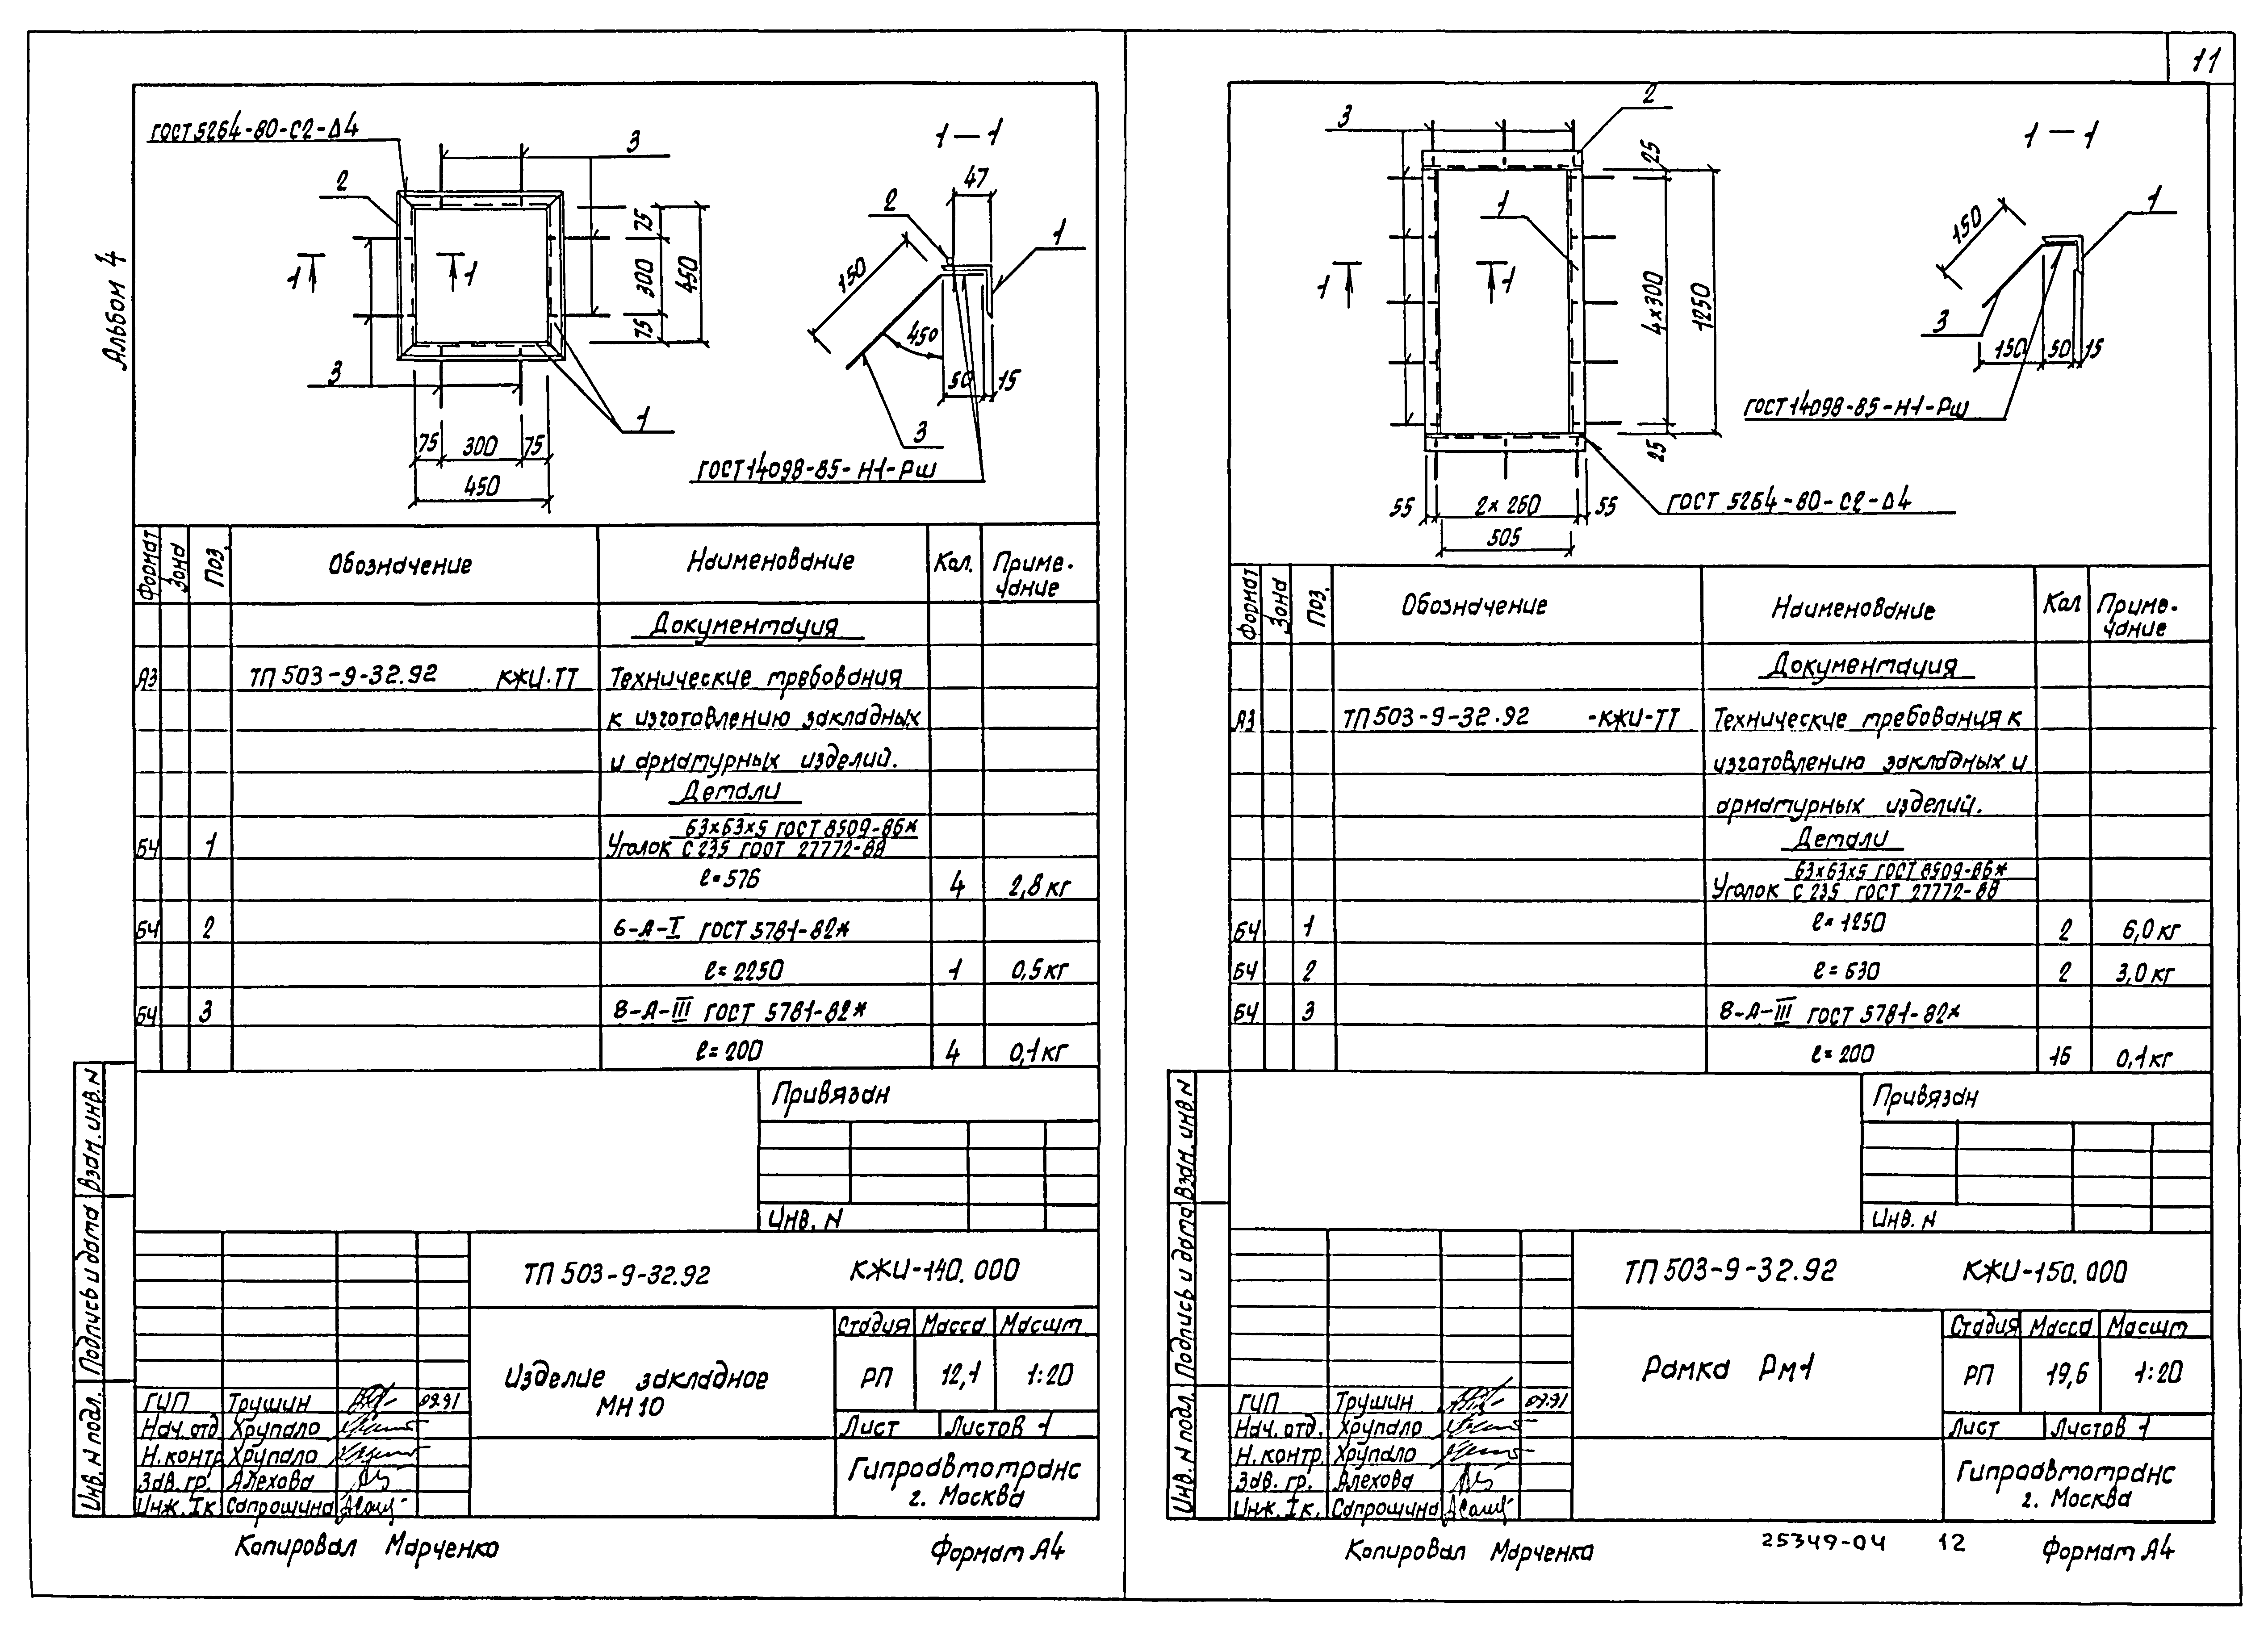 11
Альбом 4
ГОСТ 5264-80-С2-Δ4
3
2
1 1
75
300
75
450
3
1
75 300 75
450
1—1
47
2
1
150
450
50 15
3
ГОСТ 14098-85-Н1-Рш
Формат Зона Поз. Обозначение Наименование Кол. Приме-
чание
Документация
А3 ТП 503-9-32.92 КЖИ-ТТ Технические требования
к изготовлению закладных
и арматурных изделий.
Детали
63х63х5 ГОСТ 8509-86*
БЧ 1 Уголок С 235 ГОСТ 27772-88
ℓ=576 4 2,8 кг
БЧ 2 6-А-I ГОСТ 5781-82*
ℓ=2250 1 0,5 кг
БЧ 3 8-А-III ГОСТ 5781-82*
ℓ=200 4 0,1 кг
Привязан
Инв. N
Взам. инв. N
Подпись и дата
Инв. N подл.
ТП 503-9-32.92 КЖИ-140.000
Стадия Масса Масшт
Изделие закладное
МН 10
РП 12,1 1:20
Лист Листов 1
Гипроавтотранс
г. Москва
ГИП Трушин 09.91
Нач. отд Хрупало
Н. контр Хрупало
Зав. гр. Алехова
Инж. Iк Сапрошина
Копировал Марченко Формат А4
3
2
1
1 1
25
4х300
1250
25
55 2х260 55
505
ГОСТ 5264-80-С2-Δ4
1—1
150
1
3
150 50 15
ГОСТ 14098-85-Н1-Рш
Формат Зона Поз. Обозначение Наименование Кол Приме-
чание
Документация
А3 ТП 503-9-32.92 -КЖИ-ТТ Технические требования к
изготовлению закладных и
арматурных изделий.
Детали
63х63х5 ГОСТ 8509-86*
Уголок С 235 ГОСТ 27772-88
БЧ 1 ℓ=1250 2 6,0 кг
БЧ 2 ℓ=630 2 3,0 кг
БЧ 3 8-А-III ГОСТ 5781-82*
ℓ=200 16 0,1 кг
Привязан
Инв. N
Взам. инв. N
Подпись и дата
Инв. N подл.
ТП 503-9-32.92 КЖИ-150.000
Стадия Масса Масшт
Рамка Рм1
РП 19,6 1:20
Лист Листов 1
Гипроавтотранс
г. Москва
ГИП Трушин 09.91
Нач. отд. Хрупало
Н. контр. Хрупало
Зав. гр. Алехова
Инж. Iк. Сапрошина
Копировал Марченко 25349-04 12 Формат А4